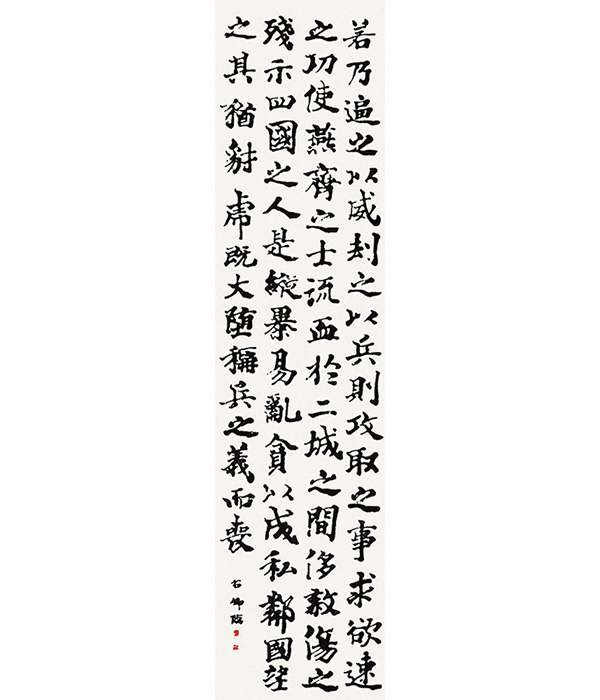 若乃逼之以威劫之以兵則攻取之事求欲速
之功使燕齊之士流血於二城之間侈殺傷之
殘示四國之人是縱暴易亂貪以成私鄰國望
之其猶豺虎既大墮稱兵之義而喪
臨